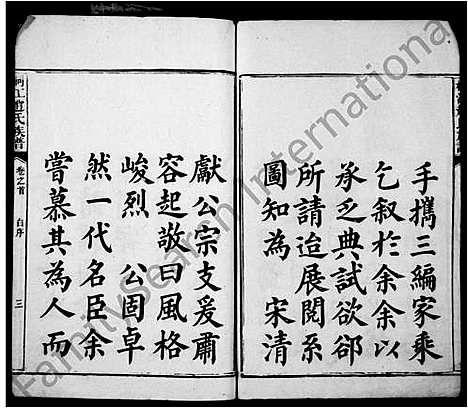 手攜三編家乘
乞叙於余余以
承乏典試欲郤
所請迨展閱系
圖知為 宋清
獻公宗支爰肅
容起敬曰風格
峻烈 公固卓
然一代名臣余
嘗慕其為人而
江趙氏族譜
卷之首
白序
三
FamilySearch International